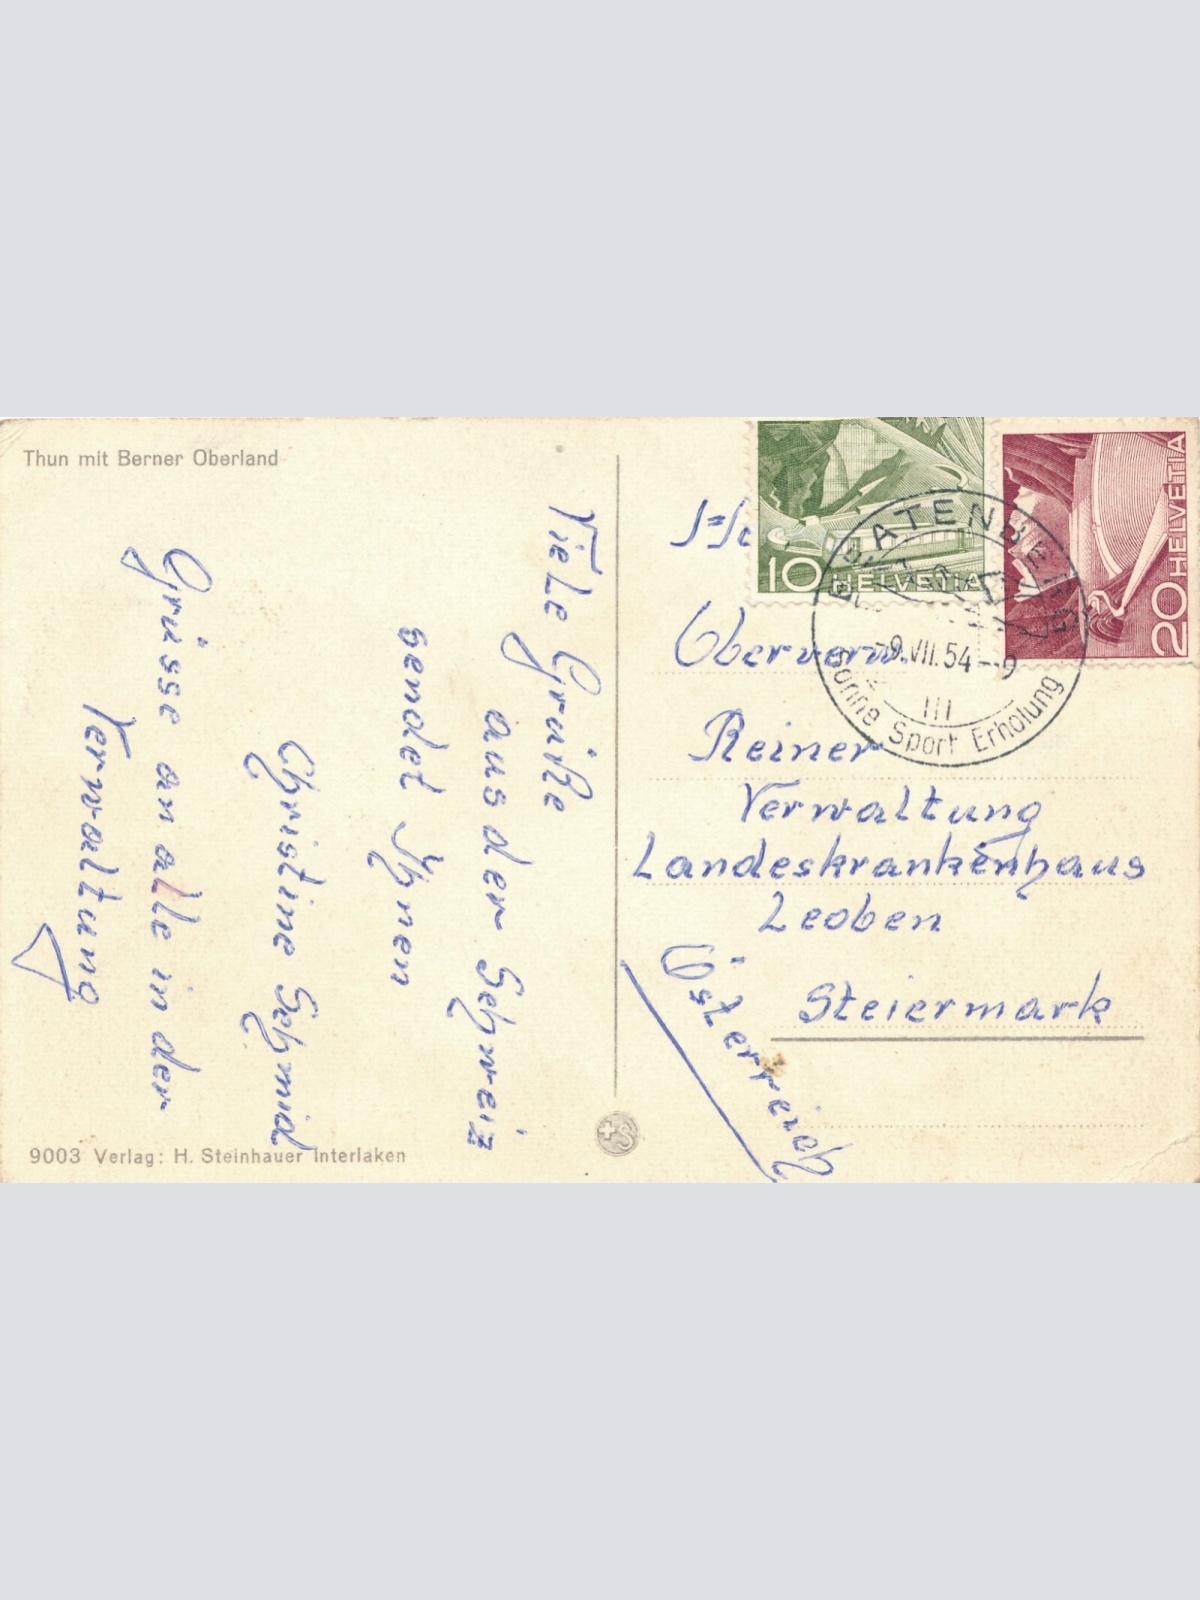 Thun mit Berner Oberland
Viele Grüße
aus der Schweiz
sendet Ihnen
Christine Schmid
Grüsse an alle in der
Verwaltung
9003 Verlag: H. Steinhauer Interlaken
10 HELVETIA
20 HELVETIA
BEATENBERG
-9.VII.54--9
III
Sonne Sport Erholung
Oberverw.
Reiner
Verwaltung
Landeskrankenhaus
Leoben
Steiermark
Österreich